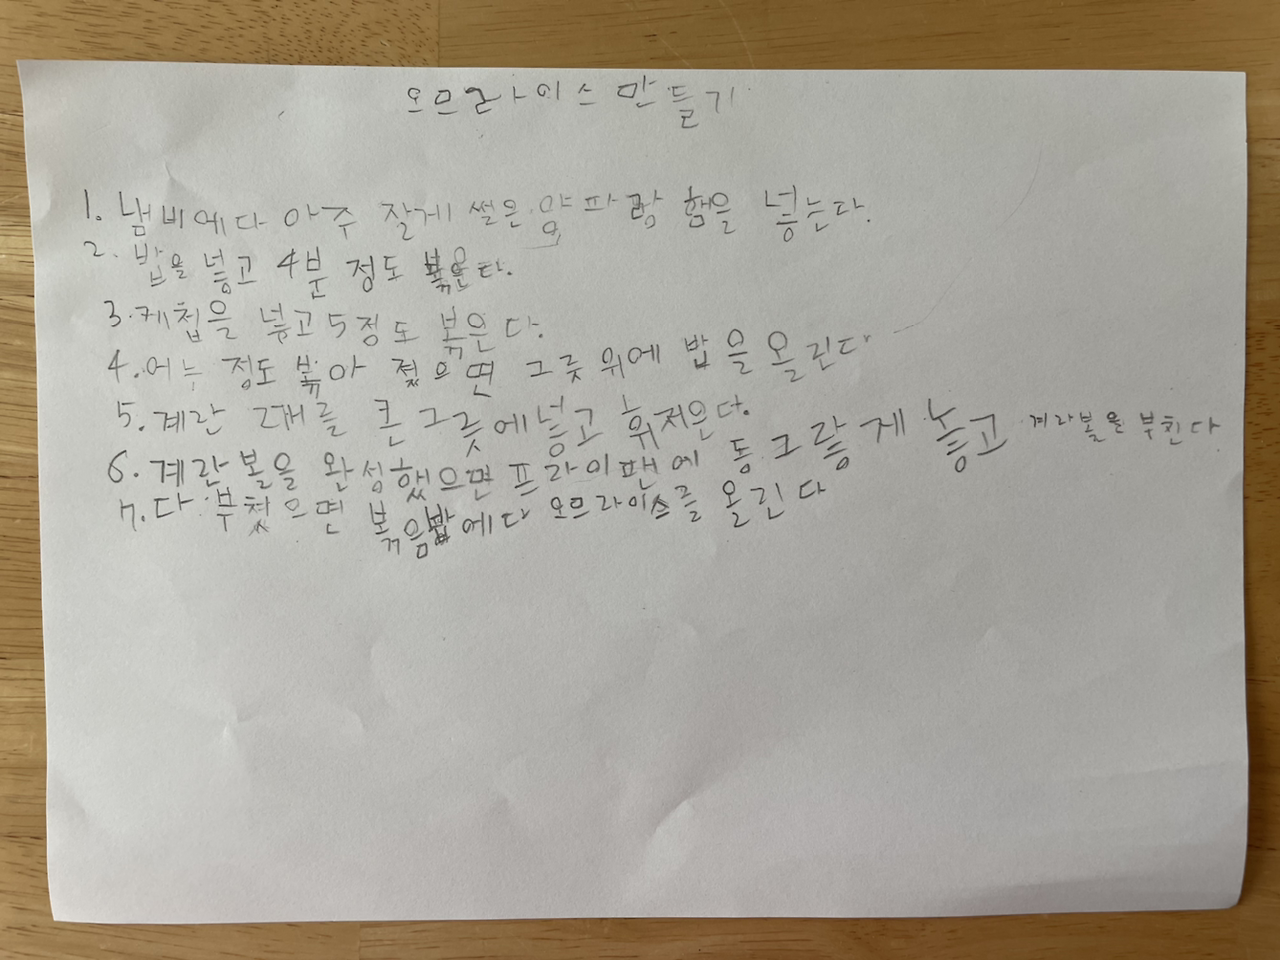 오므라이스 만들기
1. 냄비에다 아주 잘게 썰은 양파랑 햄을 넣는다.
2. 밥을 넣고 4분 정도 볶은다.
3. 케첩을 넣고 5정도 볶은다.
4. 어느 정도 볶아 졌으면 그릇 위에 밥을 올린다
5. 계란 2개를 큰 그릇에 넣고 휘저은다.
6. 계란 볼을 완성했으면 프라이팬에 동그랗게 놓고 계라볼을 부친다
7. 다 부쳤으면 볶음밥에다 오므라이스를 올린다